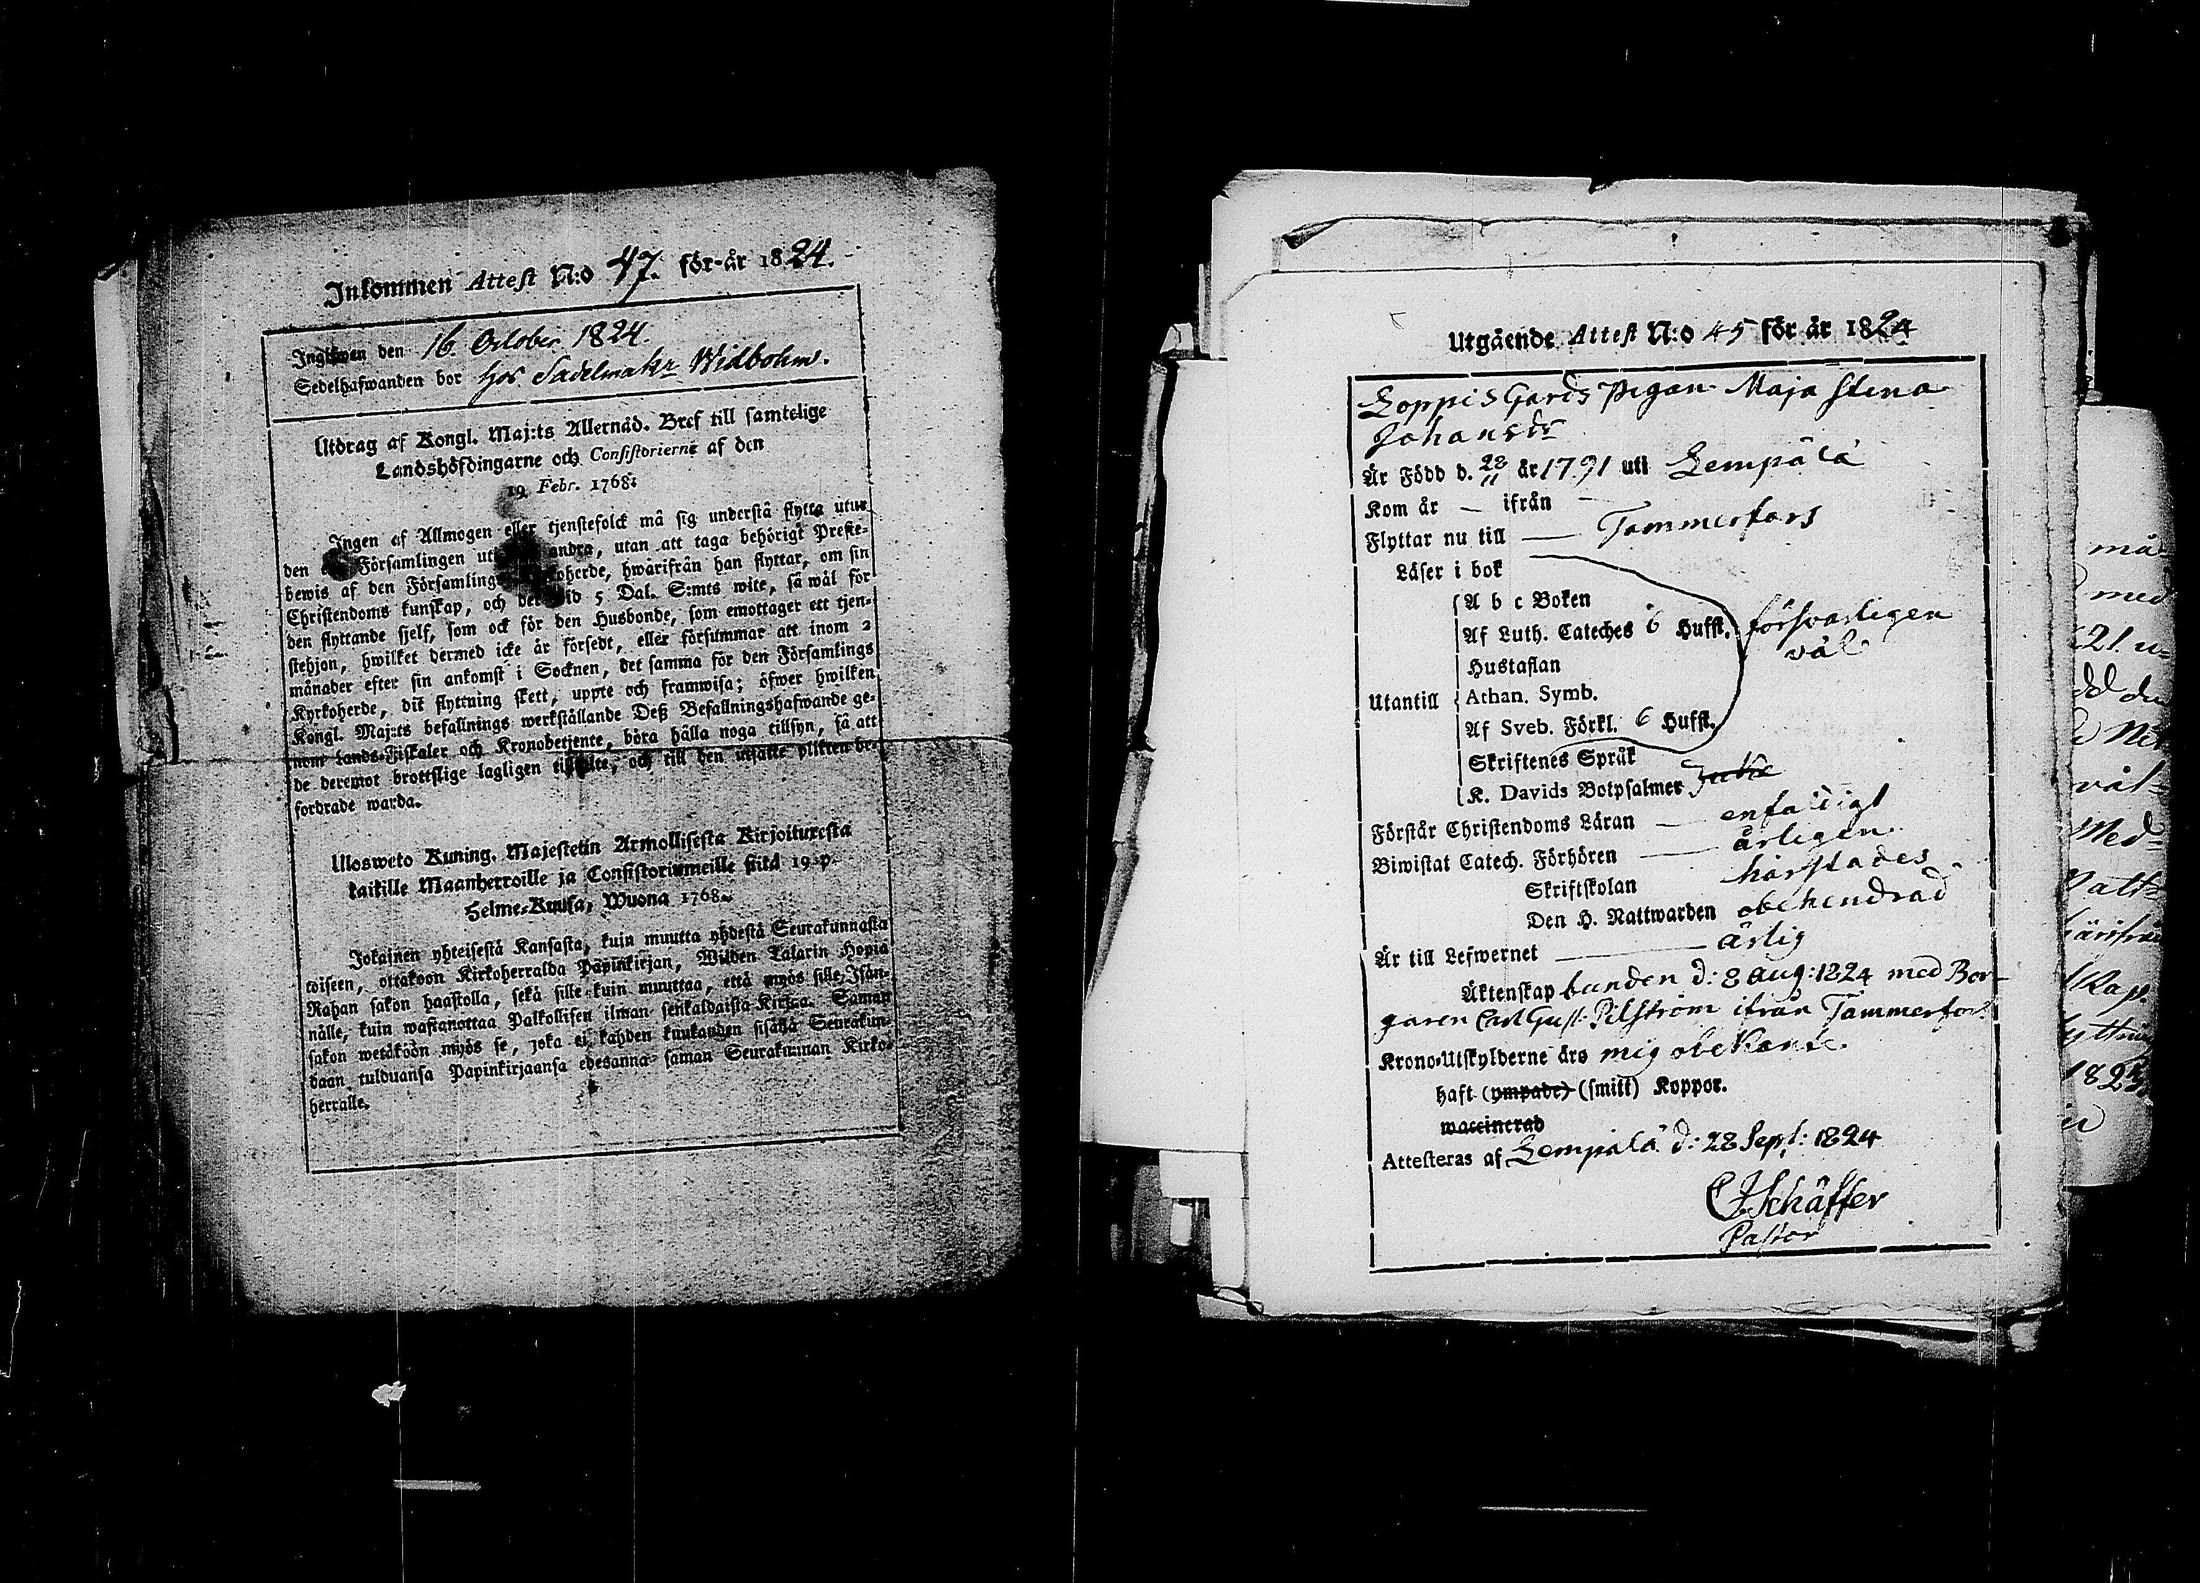 Inkommen Attest N:o 47. för år 1824.
Ingifwen den 16. October 1824.
Sedelhafwanden bor hos Sadelmakr Widbohm.
Utdrag af Kongl. Maj:ts Allernåd. Bref till samtelige
Landshöfdingarne och Consistorierne af den
19 Febr. 1768:
Ingen af Allmogen eller tjenstefolck må sig understå flytta utur
den Församlingen uti andra, utan att taga behörigt Preste-
bewis af den Församlings oherde, hwarifrån han flyttar, om sin
Christendoms kunskap, och det wid 5 Dal. S:mts wite, så wäl för
den flyttande sjelf, som ock för den Husbonde, som emottager ett tjen-
stehjon, hwilket dermed icke är försedt, eller försummar att inom 2
månader efter sin ankomst i Socknen, det samma för den Församlings
Kyrkoherde, dit flyttning skett, uppte och framwisa; öfwer hwilken
Kongl. Maj:ts befallnings werkställande Deß Befallningshafwande ge-
nom Lands-Fiskaler och Kronobetjente, böra hålla noga tillsyn, så att
de deremot brottslige lagligen tiltalte, och till den utsatte plikten be-
fordrade warda.
Ulosweto Kuning. Majestetin Armollisesta Kirjoituxesta
kaikille Maanherroille ja Consistoriumeille siitä 19. p.
Helme-Kuusa, Wuona 1768.
Jokainen yhteisestä Kansasta, kuin muutta yhdestä Seurakunnasta
toiseen, ottakoon Kirkoherralda Papinkirjan, Wiiden Talarin Hopia
Rahan sakon haastolla, sekä sille kuin muuttaa, että myös sille Isän-
nälle, kuin wastanottaa Palkollisen ilman senkaldaista Kirjaa. Saman
sakon wetäköön myös se, joka ei kahden kuukauden sisällä Seurakun-
daan tulduansa Papinkirjaansa edesanna saman Seurakunnan Kirko-
herralle.
Utgående Attest N:o 45 för år 1824
Loppis Gårds Pigan Maja Stina
Johansdr
Är Född d. 28/11 år 1791 uti Lempälä
Kom år — ifrån —
Flyttar nu till — Tammerfors
Läser i bok
A b c Boken
Af Luth. Cateches 6 Hufst. försvarligen
väl
Hustaflan
Utantill Athan. Symb.
Af Sveb. Förkl. 6 Hufst.
Skriftenes Språk
K. Davids Botpsalmer
Förstår Christendoms Läran — enfaldigt
Biwistat Catech. Förhören — årligen
Skriftskolan härstädes
Den H. Nattwarden obehindrad
Är till Lefwernet — ärlig
Äktenskap bunden d: 8 Aug: 1824 med Bor-
garen Carl Gust. Pilström ifrån Tammerfors
Krono-Utskylderne äro mig obekante.
Haft (ympade) (smitt) Koppor.
waccinerad
Attesteras af Lempälä d: 28 Sept: 1824
CJSchäffer
Pastor
må
med
21. u-
väl-
Med-